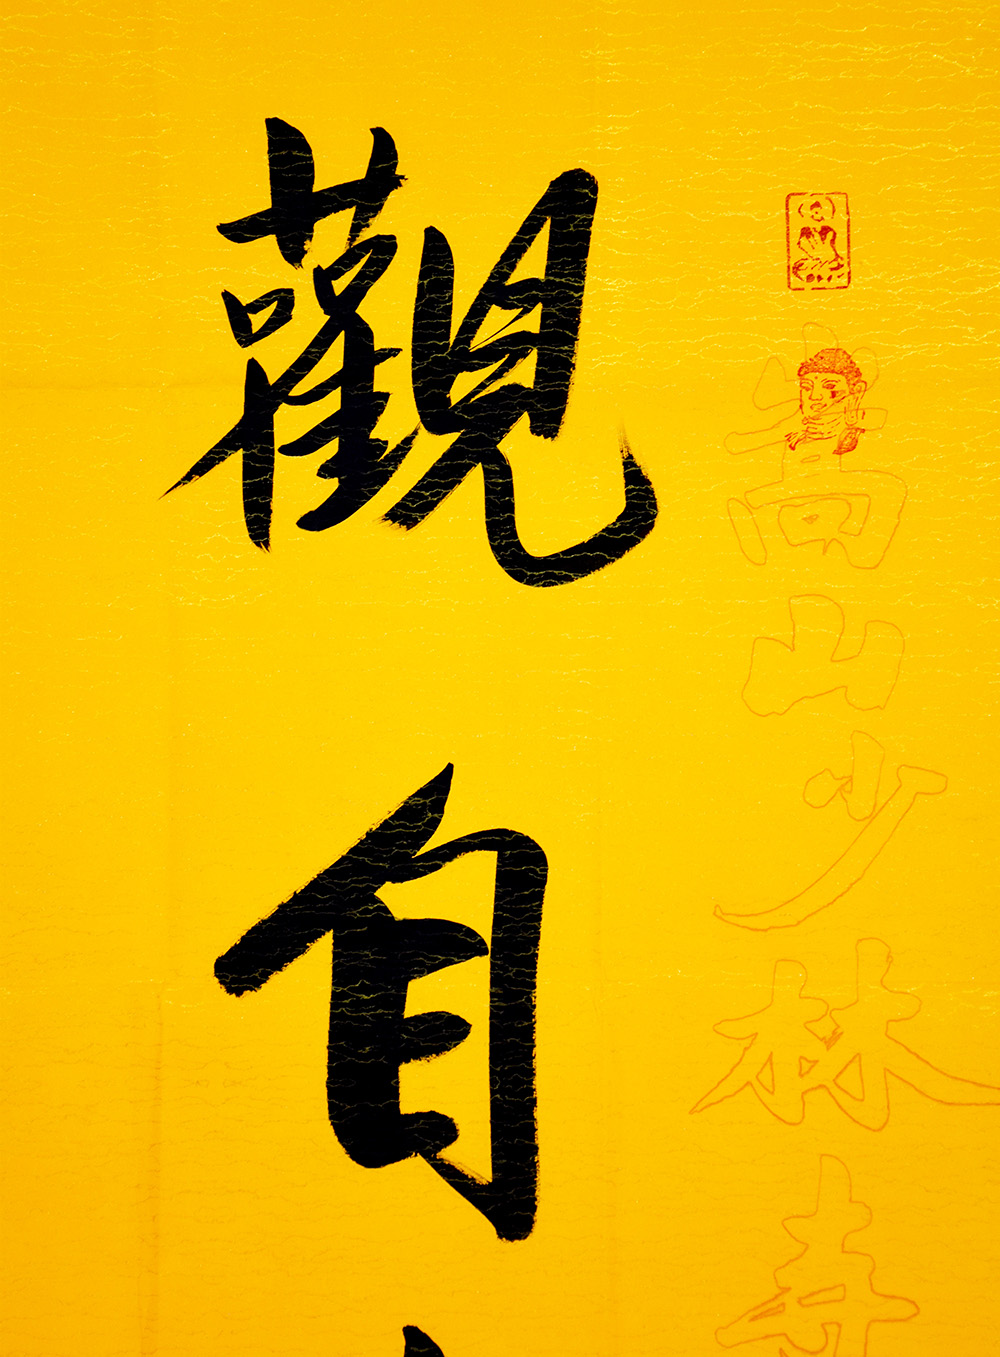 嵩山少林寺
觀自